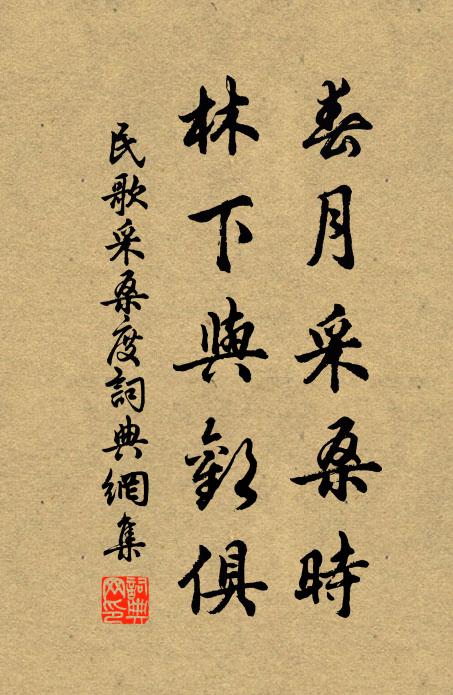 春月采桑時
林下與歡俱
民歌采桑度詞典網集
詞典網印